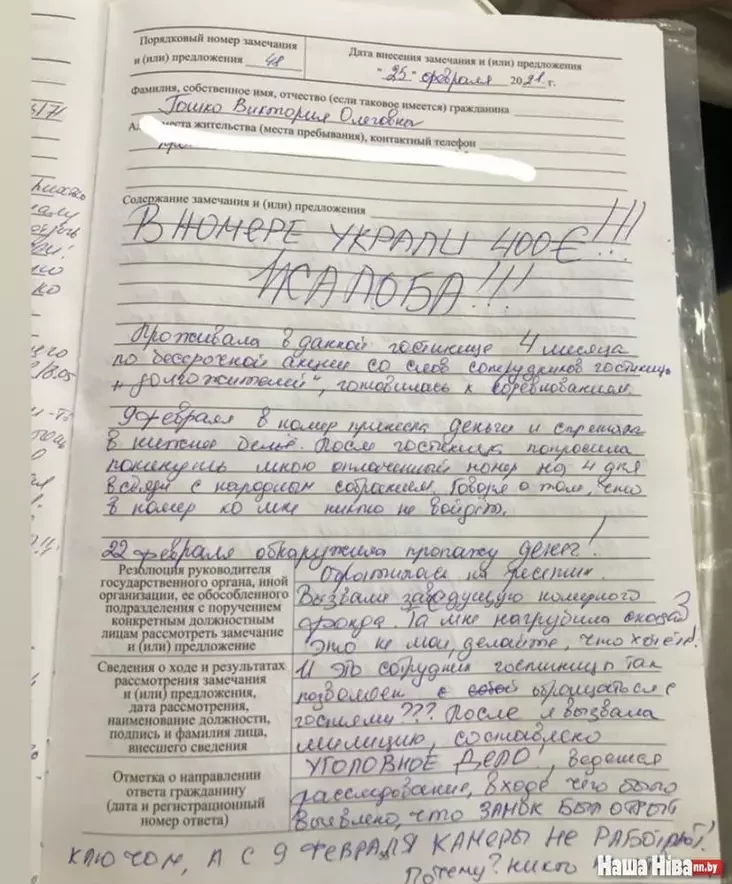 Порядковый номер замечания
и (или) предложения 48
Дата внесения замечания и (или) предложения
"25" февраля 2021 г.
Фамилия, собственное имя, отчество (если таковое имеется) гражданина
Гошко Виктория Олеговна
места жительства (места пребывания), контактный телефон
Содержание замечания и (или) предложения
В НОМЕРЕ УКРАЛИ 400€!!!
ЖАЛОБА!!!
Проживала в данной гостинице 4 месяца
по бессрочной акции со слов сотрудников гостиницы
"долгожителей", готовилась к соревнованиям.
9 февраля в номер принесла деньги и спрятала
в нижнее бельё. После гостиница попросила
покинуть мною оплаченный номер на 4 дня
в связи с народным собранием. Говоря о том, что
в номер ко мне никто не войдёт.
22 февраля обнаружила пропажу денег!
Резолюция руководителя
государственного органа, иной
организации, ее обособленного
подразделения с поручением
конкретным должностным
лицам рассмотреть замечание
и (или) предложение
Обратилась на ресепшн.
Вызвали заведующую номерного
фонда. Та мне нагрубила сказав
это не мои, делайте, что хотите!
Сведения о ходе и результатах
рассмотрения замечания
и (или) предложения,
дата рассмотрения,
наименование должности,
подпись и фамилия лица,
внесшего сведения
И это сотрудник гостиницы так
позволяет с собой обращаться с
гостями??? После я вызвала
милицию, составлено
Отметка о направлении
ответа гражданину
(дата и регистрационный
номер ответа)
УГОЛОВНОЕ ДЕЛО!, ведется
расследование, в ходе чего было
выявлено, что ЗАМОК БЫЛ ОТКРЫТ
КЛЮЧОМ, А С 9 ФЕВРАЛЯ КАМЕРЫ НЕ РАБОТАЮТ!
Почему? никто
Наша Ніва nn.by